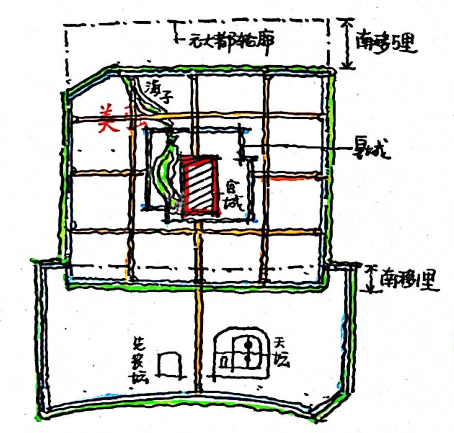 元大都轮廓
南移5里
海子
皇城
宫城
南移1里
先农坛
天坛